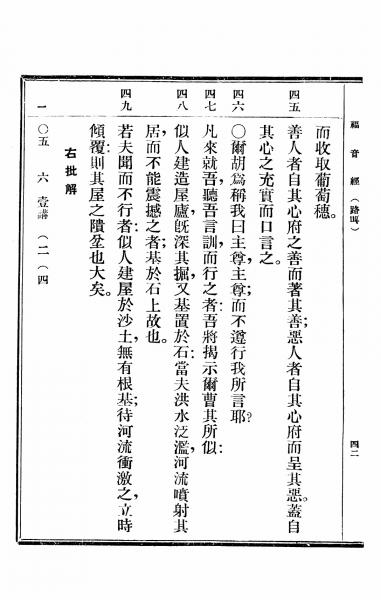 福音經 (路咖) 四二
而收取葡萄穗。
四五 善人者自其心府之善而著其善;惡人者自其心府而呈其惡。蓋自
其心之充實而口言之。
四六 〇爾胡爲稱我曰主尊,主尊;而不遵行我所言耶?
四七 凡來就吾,聽吾言訓,而行之者:吾將揭示爾曹其所似:
四八 似人建造屋廬,旣深其掘,又基置於石:當夫洪水泛濫,河流噴射其
居,而不能震撼之者;基於石上故也。
四九 若夫聞而不行者:似人建屋於沙土,無有根基;待河流衝激之,立時
傾覆;則其屋之隤坌也大矣。
右批解
一 〇五 六 壹講 (二一(四